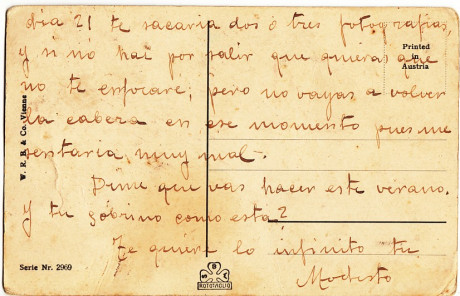 dia 21 te sacaria dos ó tres fotografias,
y si nó hai por salir que quieras que
no te enfocare; pero no vayas a volver
la cabera en ese momento pues me
sentaria muy mal.
Dime que vas hacer este verano.
y tu sobrino como esta?
Te quiere lo infinito tu
Modesto
Printed
in
Austria
W. R. B. & Co. Vienne
Serie Nr. 2969
ROTOTAGLIO